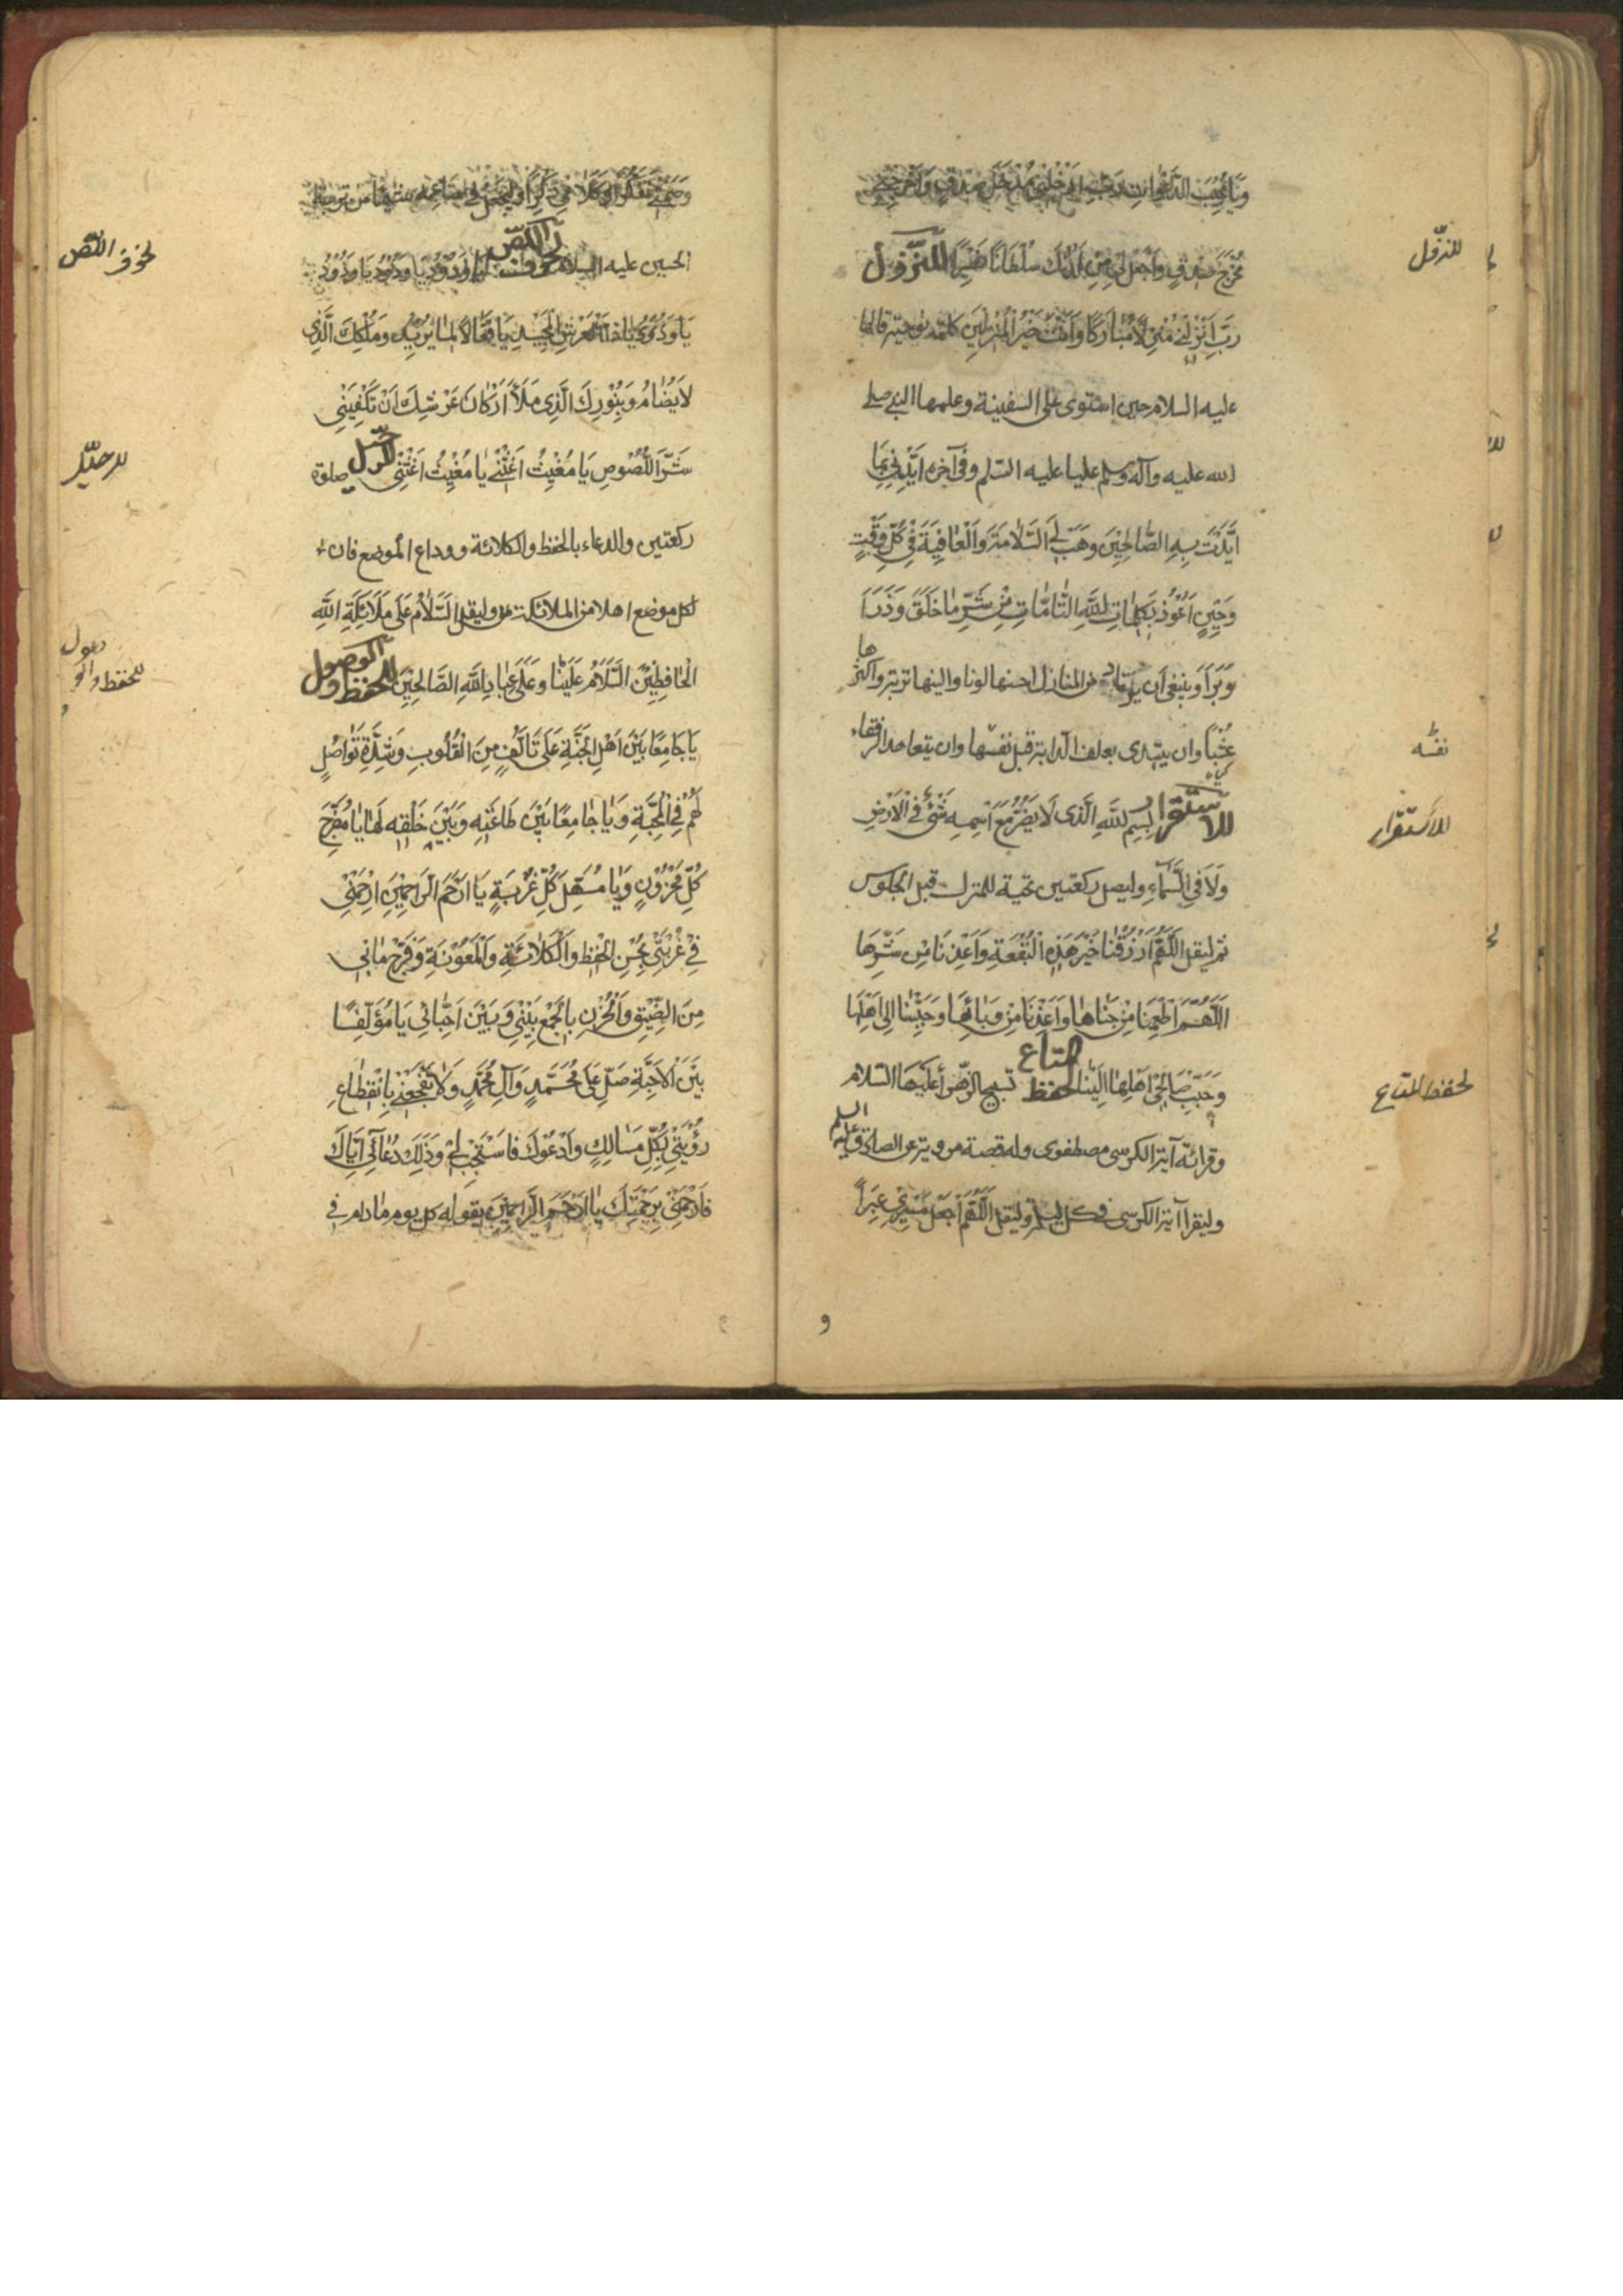 وَيَا مُجِيبَ الدَّعَوَاتِ رَبِّ اَدْخِلْنِي مُدْخَلَ صِدْقٍ وَاَخْرِجْنِي
مُخْرَجَ صِدْقٍ وَاجْعَلْ لِي مِنْ لَدُنْكَ سُلْطَانًا نَصِيرًا للنّزول
رَبِّ اَنْزِلْنِي مُنْزَلًا مُبَارَكًا وَاَنْتَ خَيْرُ الْمُنْزِلِينَ كلمة نوحيّة قالها
عليه السلام حين استوى على السفينة وعلمها النبي صلى
الله عليه وآله وسلم عليا عليه السّلم وفي آخره اَيِّدْنِي بِمَا
اَيَّدْتَ بِهِ الصَّالِحِينَ وَهَبْ لِيَ السَّلَامَةَ وَالْعَافِيَةَ فِي كُلِّ وَقْتٍ
وَحِينٍ اَعُوذُ بِكَلِمَاتِ اللهِ التَّامَّاتِ مِنْ شَرِّ مَا خَلَقَ وَذَرَأَ
وَبَرَأَ وينبغي ان يرتاد من المنازل احسنها لونا والينها تربة واكثرها
عشبًا وان يبتدى بعلف الدّابة قبل نفسها وان يتعاهد الرفقاء
للاستقرار بِسْمِ اللهِ الَّذِى لَا يَضُرُّ مَعَ اسْمِهِ شَيْءٌ فِي الْاَرْضِ
وَلَا فِي السَّمَاءِ وليصل ركعتين تحية للمنزل قبل الجلوس
ثم ليقل اَللّهُمَّ ارْزُقْنَا خَيْرَ هَذِهِ الْبُقْعَةِ وَاَعِذْنَا مِنْ شَرِّهَا
اَللّهُمَّ اَطْعِمْنَا مِنْ جَنَاهَا وَاَعِذْنَا مِنْ وَبَائِهَا وَحَبِّبْنَا اِلَى اَهْلِهَا
وَحَبِّبْ صَالِحِي اَهْلِهَا اِلَيْنَا لحفظ المتاع تسبيح الزهراء عليها السّلام
وقرائة آية الكرسى مصطفوى وله قصة مروية عن الصادق عليه السلم
وليقرا آية الكرسى في كل ليلة وليقل اَللّهُمَّ اجْعَلْ مَسِيرِي عِبَرًا
للنزّول
نفسه
للأستقرار
لحفظ المتاع
و
وَصَمْتِي تَفَكُّرًا وَكَلَامِي ذِكْرًا وليجعل في متاعه شيئا من تربة
الحسين عليه السلام لخوف اللّصّ يَا وَدُودُ يَا وَدُودُ يَا وَدُودُ
يَا وَدُودُ يَا ذَا الْعَرْشِ الْمَجِيدِ يَا فَعَّالًا لِمَا يُرِيدُ وَمُلْكِكَ الَّذِي
لَا يُضَامُ وَبِنُورِكَ الَّذِي مَلَأَ اَرْكَانَ عَرْشِكَ اَنْ تَكْفِيَنِي
شَرَّ اللُّصُوصِ يَا مُغِيثُ اَغِثْنِي يَا مُغِيثُ اَغِثْنِي للرحيل صلوة
ركعتين والدعاء بالحفظ والكلائة ووداع الموضع فان
لكل موضع اهلا من الملائكة وليقل السَّلَامُ عَلَى مَلَائِكَةِ اللهِ
الْحَافِظِينَ السَّلَامُ عَلَيْنَا وَعَلَى عِبَادِ اللهِ الصَّالِحِينَ للحفظ والوصول
يَا جَامِعًا بَيْنَ اَهْلِ الْجَنَّةِ عَلَى تَأَلُّفٍ مِنَ الْقُلُوبِ وَشِدَّةِ تَوَاصُلٍ
لَهُمْ فِي الْمَحَبَّةِ وَيَا جَامِعًا بَيْنَ طَاعَتِهِ وَبَيْنَ خَلْقِهِ لَهَا يَا مُفَرِّجَ
كُلِّ مَحْزُونٍ وَيَا مُسَهِّلَ كُلِّ غُرْبَةٍ يَا اَرْحَمَ الرَّاحِمِينَ ارْحَمْنِي
فِي غُرْبَتِي بِحُسْنِ الْحِفْظِ وَالْكَلَائَةِ وَالْمَعُونَةِ وَفَرِّجْ مَا بِي
مِنَ الضِّيقِ وَالْحُزْنِ بِالْجَمْعِ بَيْنِي وَبَيْنَ اَحِبَّائِي يَا مُؤَلِّفًا
بَيْنَ الْاَحِبَّةِ صَلِّ عَلَى مُحَمَّدٍ وَآلِ مُحَمَّدٍ وَلَا تَفْجَعْنِي بِانْقِطَاعِ
رُؤْيَتِي بِكُلِّ مَسَالِكٍ وَاَدْعُوكَ فَاسْتَجِبْ لِي وَذَلِكَ دُعَائِي اِيَّاكَ
فَارْحَمْنِي بِرَحْمَتِكَ يَا اَرْحَمَ الرَّاحِمِينَ يقوله كل يوم مادام في
لخوف اللّصّ
للرحيل
للحفظ والو
صول